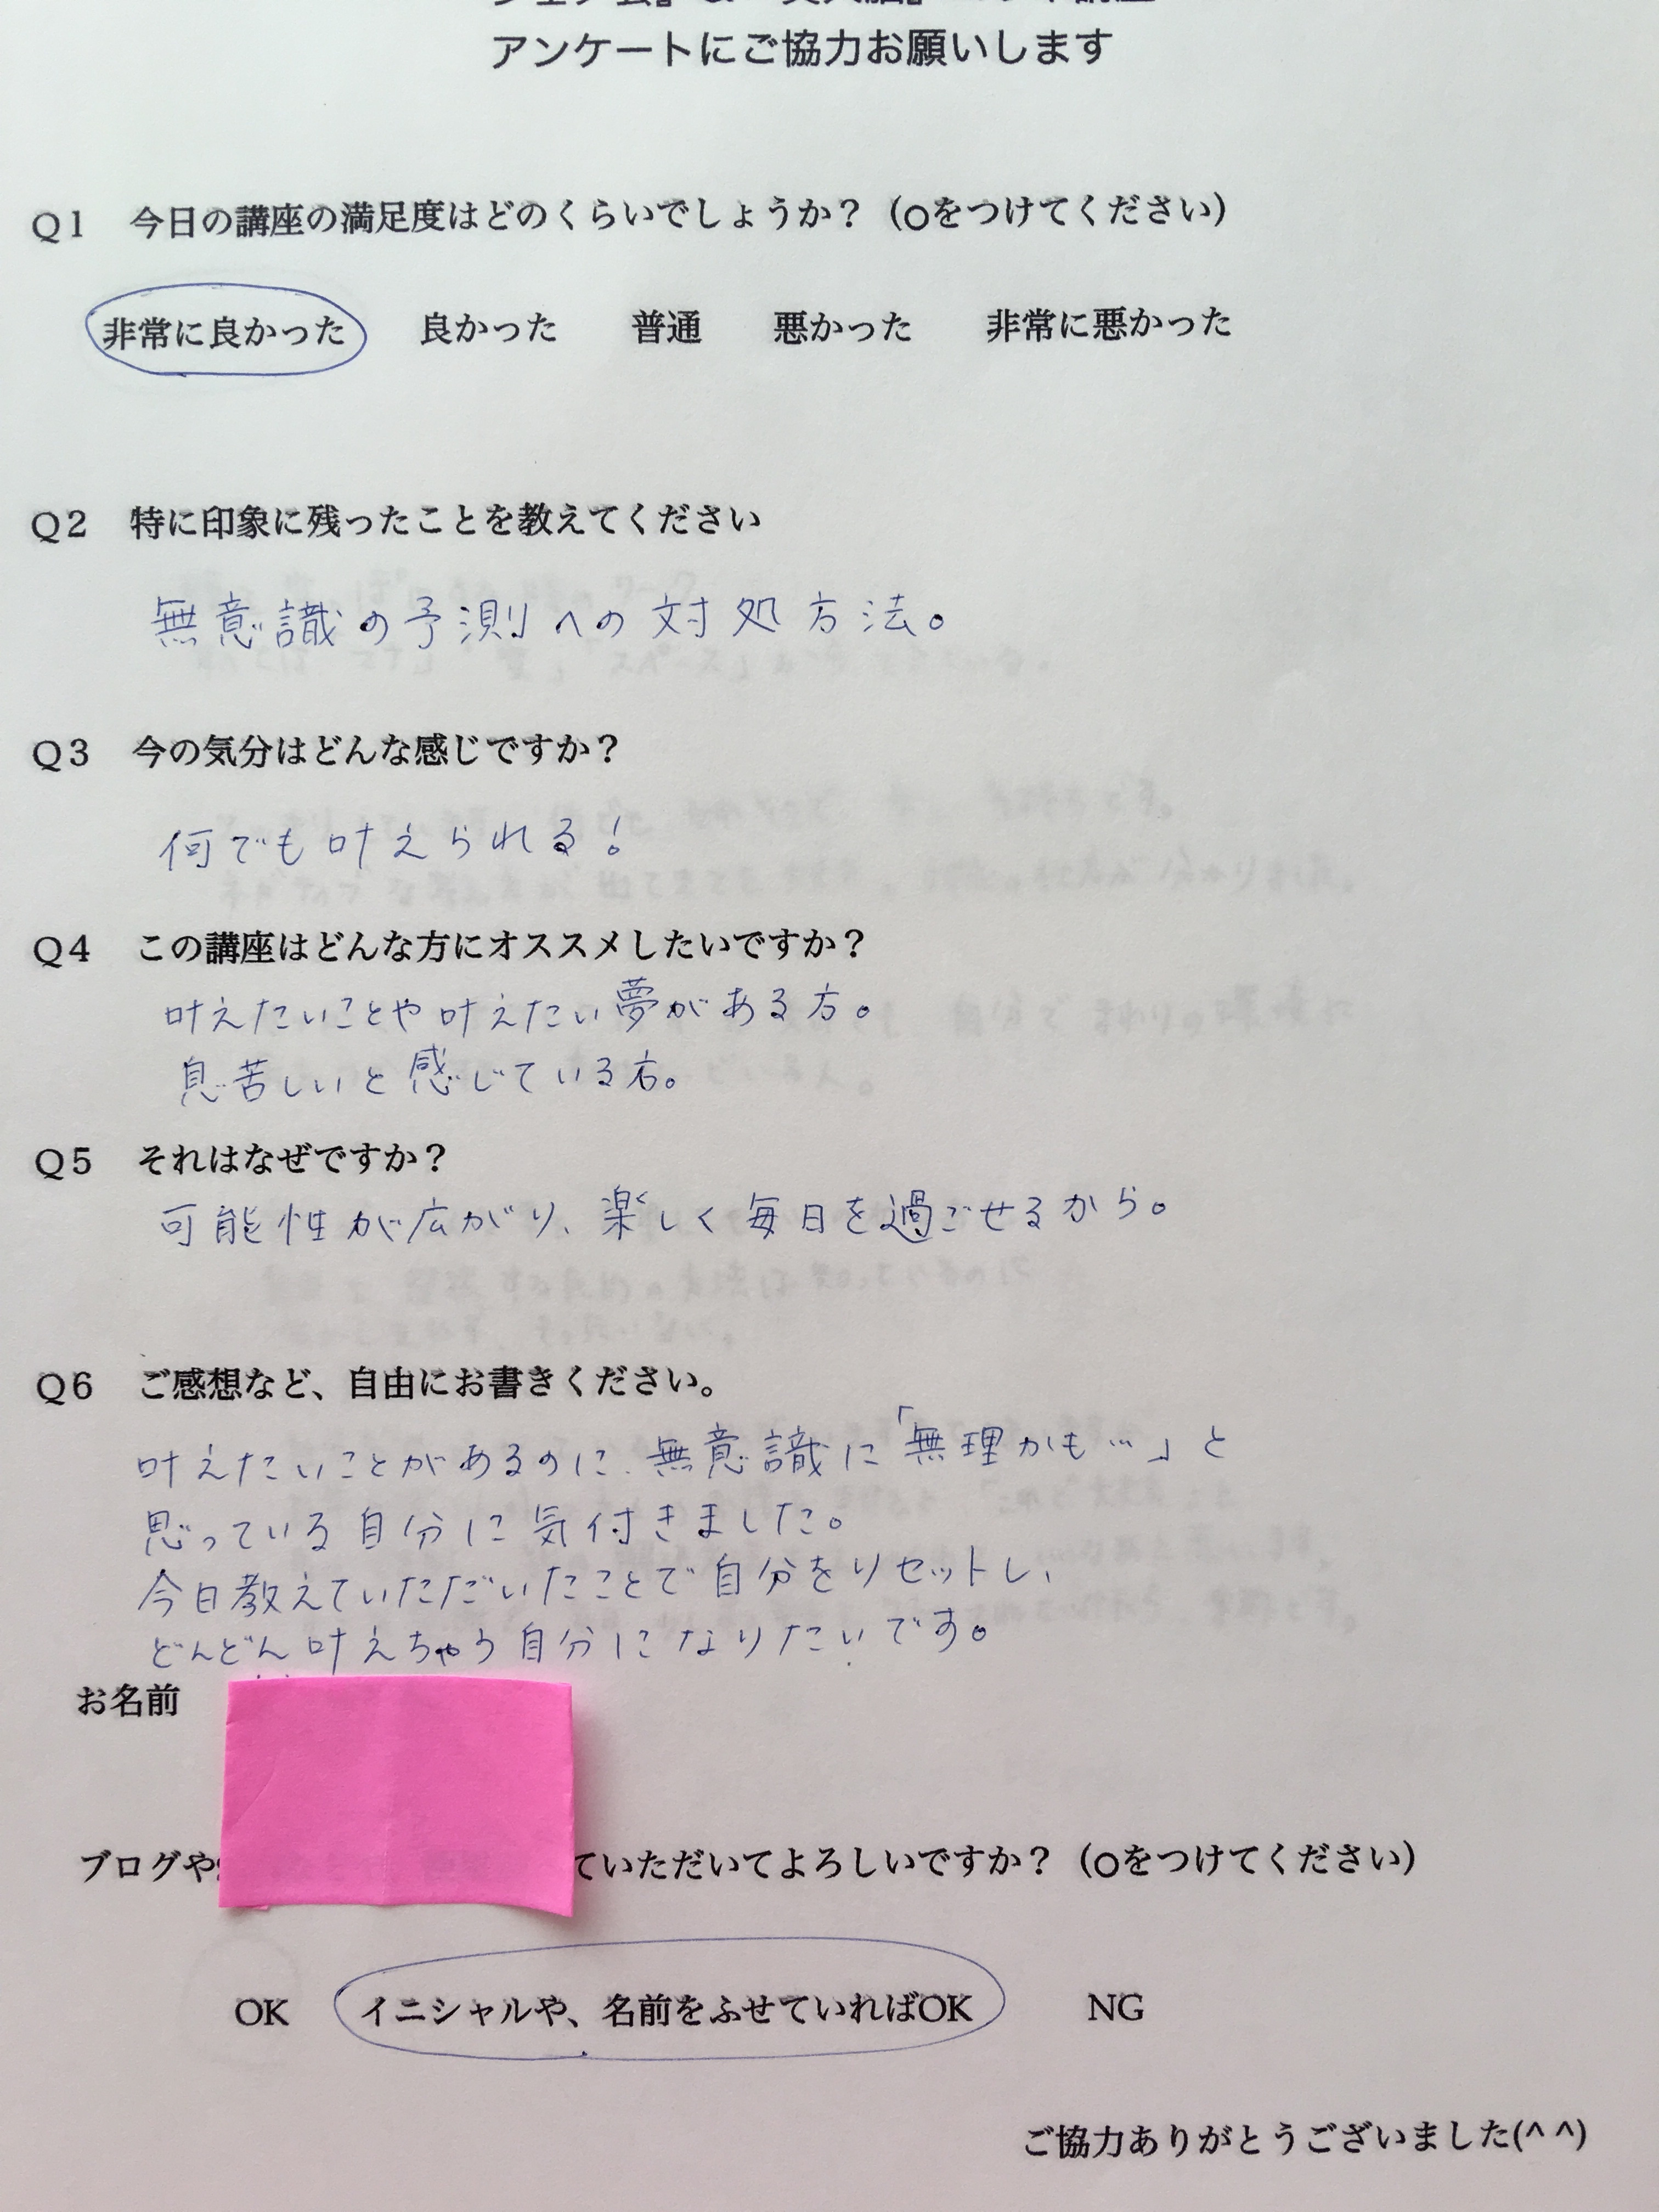 アンケートにご協力お願いします
Q1 今日の講座の満足度はどのくらいでしょうか?(○をつけてください)
非常に良かった 良かった 普通 悪かった 非常に悪かった
Q2 特に印象に残ったことを教えてください
無意識の予測への対処方法。
Q3 今の気分はどんな感じですか?
何でも叶えられる!
Q4 この講座はどんな方にオススメしたいですか?
叶えたいことや叶えたい夢がある方。
息苦しいと感じている方。
Q5 それはなぜですか?
可能性が広がり、楽しく毎日を過ごせるから。
Q6 ご感想など、自由にお書きください。
叶えたいことがあるのに、無意識に「無理かも…」と
思っている自分に気付きました。
今日教えていただいたことで自分をリセットし、
どんどん叶えちゃう自分になりたいです。
お名前
ブログや ていただいてよろしいですか?(○をつけてください)
OK イニシャルや、名前をふせていればOK NG
ご協力ありがとうございました(^ ^)